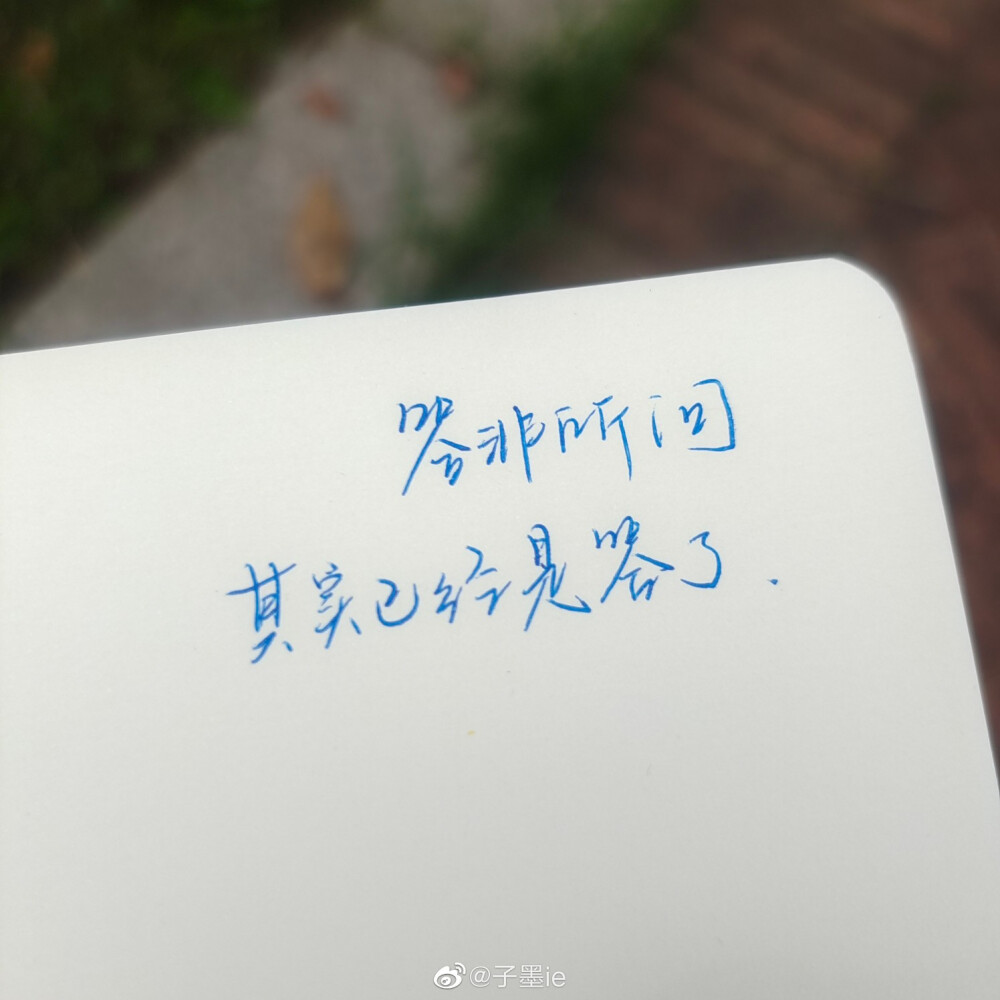 答非所问
其实已经是答了.
@子墨ie